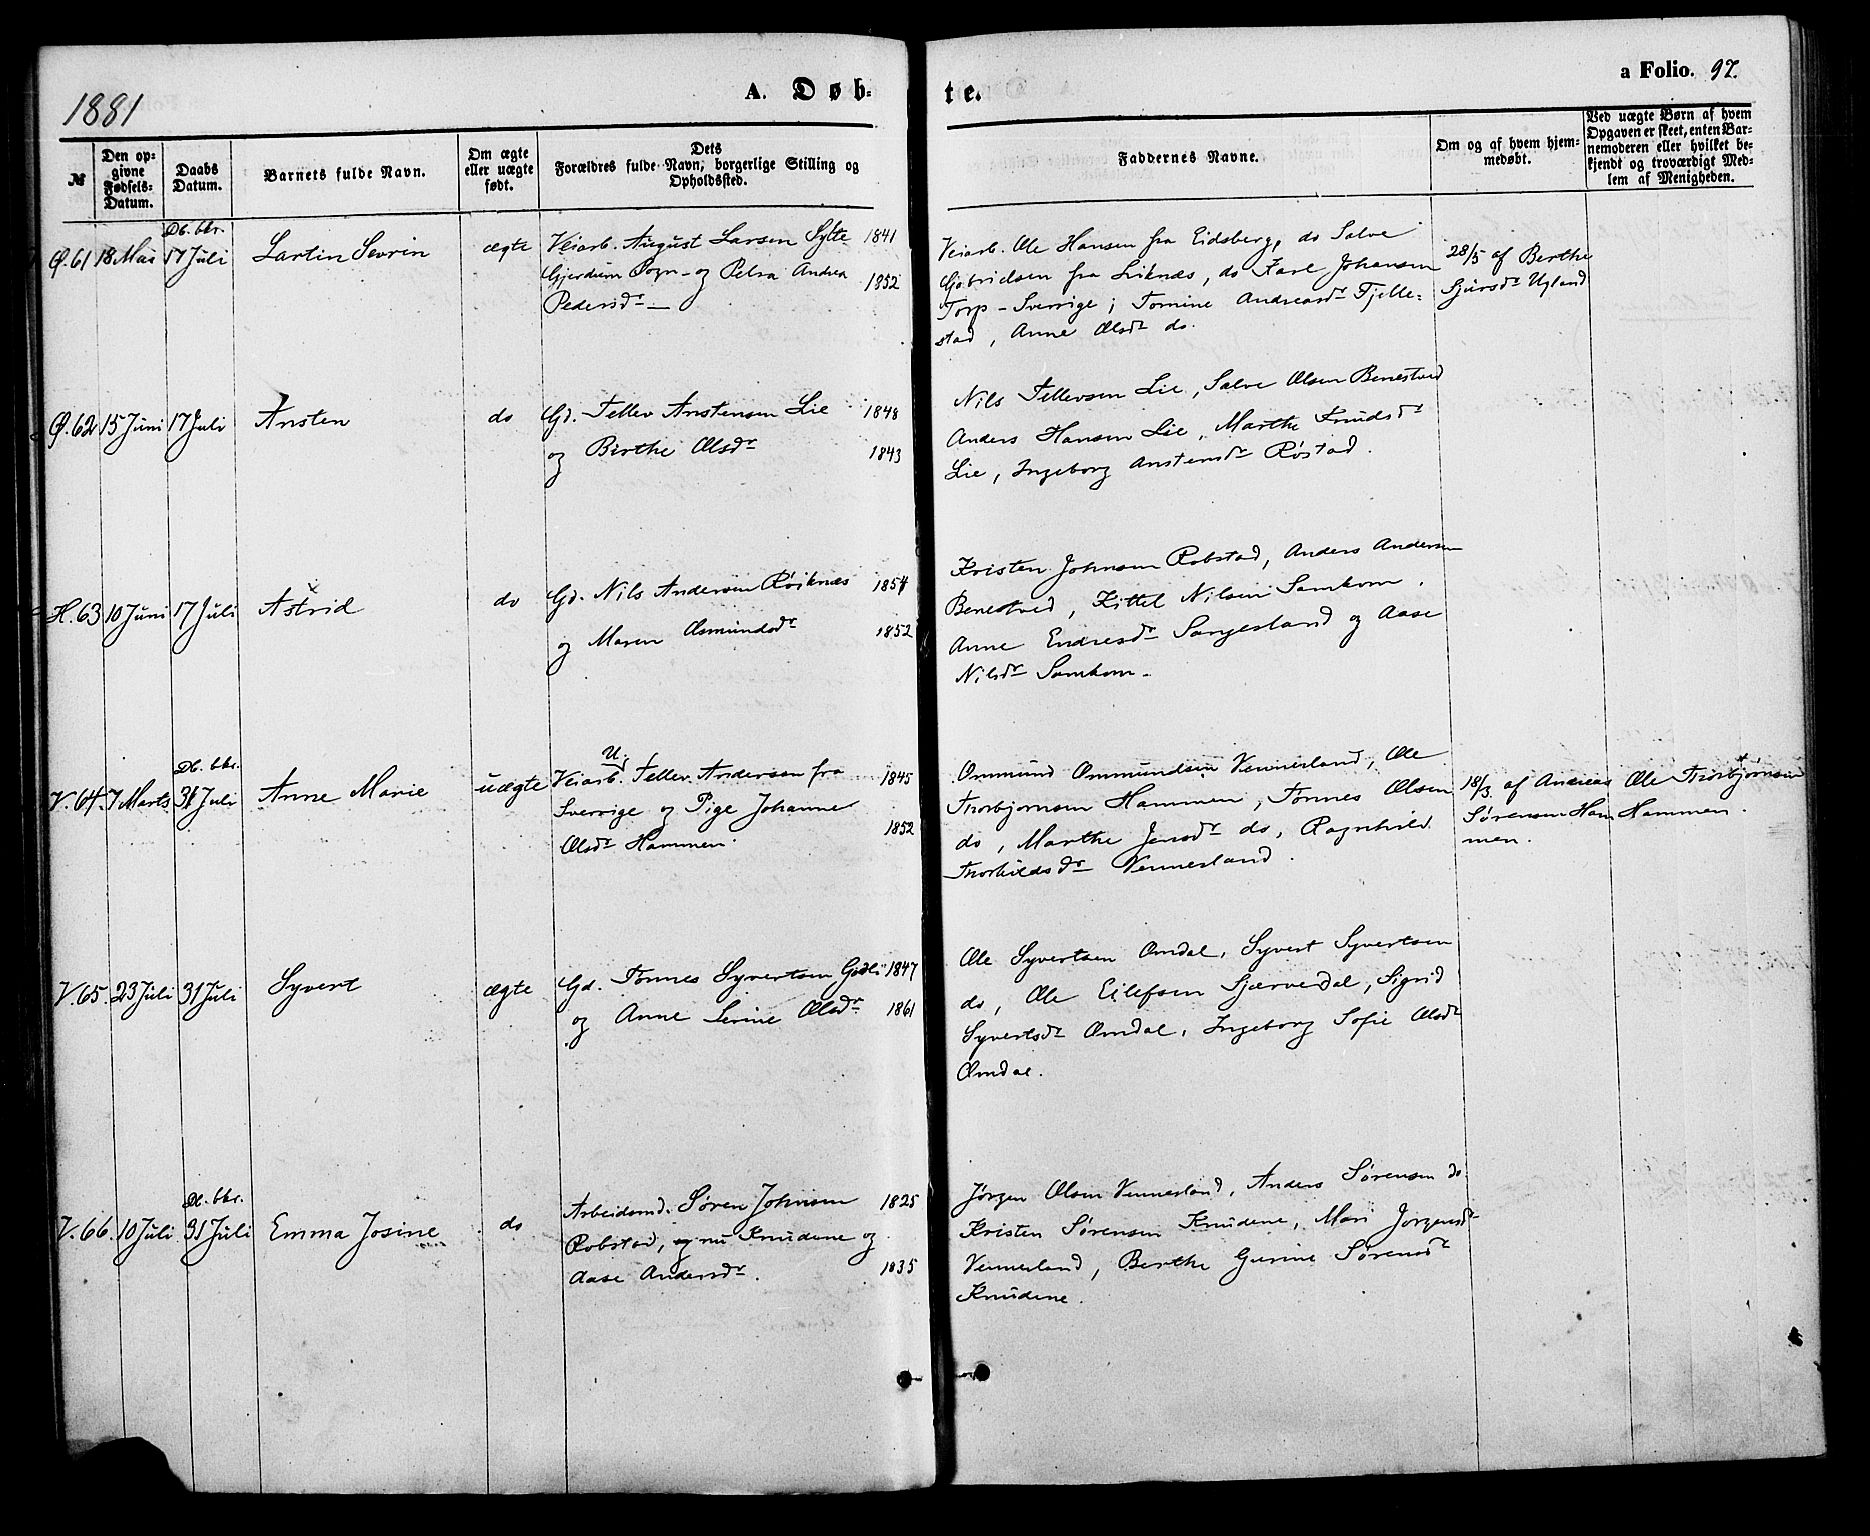 1881
A. Døb-
te.
a Folio. 97.
№
Den op-
givne
Fødsels-
Datum.
Daabs
Datum.
Barnets fulde Navn.
Om ægte
eller uægte
født.
Dets
Forældres fulde Navn, borgerlige Stilling og
Opholdssted.
Faddernes Navne.
Om og af hvem hjem-
medøbt.
Ved uægte Børn af hvem
Opgaven er skeet, enten Bar-
nemoderen eller hvilket be-
kjendt og troværdigt Med-
lem af Menigheden.
Ø.61
18 Mai
Db. bkr.
17 Juli
Lartin Sevrin
ægte
Veiarb. August Larsen Sytte 1841
Gjerdum Sogn - og Petra Andrea 1852
Pedersdr —
Veiarb. Ole Hansen fra Eidsberg, do Salve
Gabrielsen fra Liknæs, do Karl Johansen
Torp - Sverrige; Tomine Andreasdr Fjelle-
stad, Anne Olsdr do.
28/5 af Berthe
Sjursdr Ugland
Ø.62
15 Juni
17 Juli
Ansten
do
Gd. Tellev Anstensen Lie 1848
og Berthe Olsdr 1843
Nils Tellevsen Lie, Salve Olsen Benestved
Anders Hansen Lie, Marthe Knudsdr
Lie, Ingeborg Anstensdr Røstad.
H.63
10 Juni
17 Juli
Astrid
do
Gd. Nils Andersen Røiknæs 1854
og Maren Osmundsdr 1852
Kristen Johnsen Robstad, Anders Andersen
Benestved, Kittel Nilsen Samkom.
Anne Endresdr Sangesland og Aase
Nilsdr Samkom.
V.64.
7 Marts
Db. bkr.
31 Juli
Anne Marie
uægte
U.
Veiarb. Tellev Andersen fra 1845
Sverrige og Pige Johanne
1852
Olsdr Hammen.
Ommund Ommundsen Vennerland, Ole
Thorbjørnsen Hammen, Tønnes Olsen
do, Marthe Jensdr do, Ragnhild
Thorkildsdr Vennerland.
18/3. af Andreas
Sørensen Ham
men.
Ole Thorbjørnsen
Hammen.
V.65.
23 Juli
31 Juli
Syvert
ægte
Gd. Tønnes Syvertsen Godli 1847
og Anne Serine Olsdr 1861
Ole Syvertsen Omdal, Syvert Syvertsen
do, Ole Eilefsen Sjærvedal, Sigrid
Syvertsdr Omdal, Ingeborg Sofie Olsdr
Omdal.
V.66.
10 Juli
Db. bkr.
31 Juli
Emma Josine
do
Arbeidsmd. Søren Johnsen 1825
Robstad, og nu Knudene og
Aase Andersdr. 1835
Jørgen Olsen Vennerland, Anders Sørensen do.
Kristen Sørensen Knudene, Mari Jørgensdr
Vennerland, Berthe Gurine Sørensdr
Knudene.